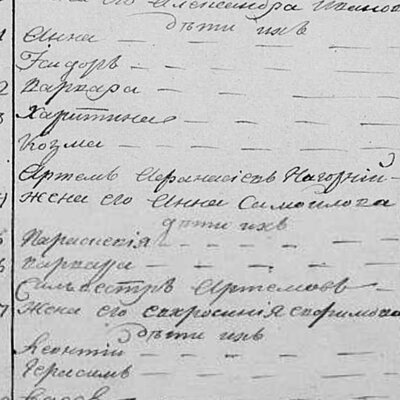 его Александра Иванов
дѣти ихъ
1 Анна
Ѳіодоръ
2 Варвара
3 Харитина
Козма
Артемъ Афанасіевъ Нагорній
4 жена его Анна Самойлова
дѣти ихъ
5 Параскевія
6 Варвара
Сильвестръ Артемовъ
7 Жена его Евфросинія Ефимова
дѣти ихъ
Леонтій
Герасимъ